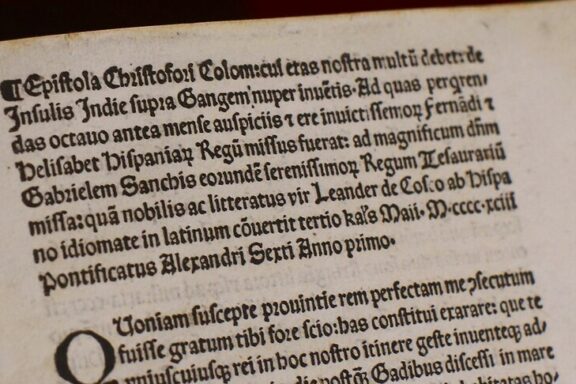 ¶ Epistola Christofori Colom: cui etas nostra multū debet: de
Insulis Indie supra Gangem nuper inuētis. Ad quas perqren-
das octauo antea mense auspiciis ⁊ ere inuictissemoꝝ Fernādi ⁊
Helisabet Hispaniaꝝ Regū missus fuerat: ad magnificum dñm
Gabrielem Sanchis eorundē serenissimoꝝ Regum Tesaurariū
missa: quā nobilis ac litteratus vir Leander de Cosco ab Hispa
no idiomate in latinum cōuertit tertio kaƚs Maii. M.cccc.xciii
Pontificatus Alexandri Sexti Anno primo.
QUoniam suscepte prouintie rem perfectam me ꝯsecutum
fuisse gratum tibi fore scio: has constitui exarare: que te
vniuscuiusqꝫ rei in hoc nostro itinere geste inuenteqꝫ ad-
die postqꝫ Gadibus discessi in mare